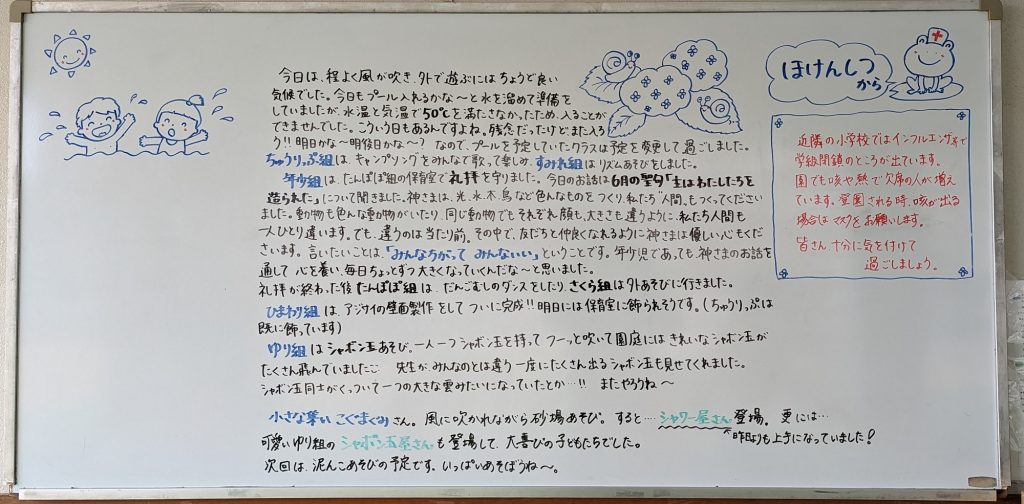 今日は、程よく風が吹き、外で遊ぶにはちょうど良い
気候でした。今日もプール入れるかな〜と水を溜めて準備を
していましたが、水温と気温で50℃を満たさなかったため、入ることが
できませんでした。こういう日もあるんですよね。残念だったけどまた入ろ
う!! 明日かな〜明後日かな〜? なので、プールを予定していたクラスは予定を変更して過ごしました。
ちゅうりっぷ組は、キャンプソングをみんなで歌って楽しみ、すみれ組はリズムあそびをしました。
年少組は、たんぽぽ組の保育室で礼拝を守りました。今日のお話は6月の聖句「主はわたしたちを
造られた」について聞きました。神さまは、光、水、木、鳥など色んなものをつくり、私たち人間、もつくってください
ました。動物も色んな動物がいたり、同じ動物でもそれぞれ顔も、大きさも違うように、私たち人間も
一人ひとり違います。でも、違うのは当たり前。その中で、友だちと仲良くなれるように神さまは優しい心もくだ
さいます。言いたいことは、「みんなちがって みんないい」ということです。年少児であっても、神さまのお話を
通して心を養い、毎日ちょっとずつ大きくなっていくんだな〜と思いました。
礼拝が終わった後たんぽぽ組は、だんごむしのダンスをしたり、さくら組は外あそびに行きました。
ひまわり組は、アジサイの壁面製作をしてついに完成!!明日には保育室に飾られそうです。(ちゅうりっぷは
既に飾っています)
ゆり組はシャボン玉あそび。一人一つシャボン玉を持ってフーッと吹いて園庭にはきれいなシャボン玉が
たくさん飛んでいました 先生が、みんなのとは違う一度にたくさん出るシャボン玉も見せてくれました。
シャボン玉同士がくっついて一つの大きな雲みたいになっていたとか…!! またやろうね〜
小さな集い こぐまくみさん。風に吹かれながら砂場あそび。すると…シャワー屋さん登場。更には…
昨日よりも上手になっていました!
可愛いゆり組のシャボン玉屋さんも登場して、大喜びの子どもたちでした。
次回は、泥んこあそびの予定です、いっぱいあそぼうね〜。
ほけんしつ
から
近隣の小学校ではインフルエンザ等で
学級閉鎖のところが出ています。
園でも咳や熱で欠席の人が増え
ています。登園される時、咳が出る
場合はマスクをお願いします。
皆さん、十分に気を付けて
過ごしましょう。